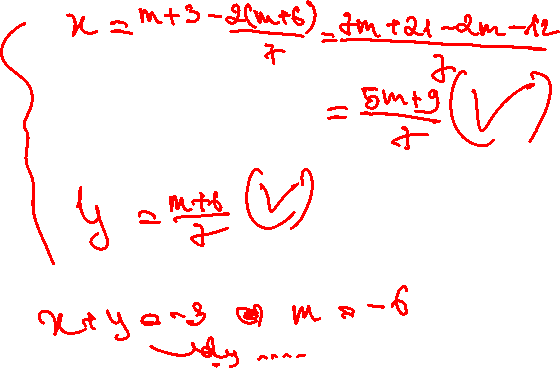 x = m+3 - 2(m+6)/7 = 7m+21-2m-12/7
= 5m+9/7 (✓)
y = m+6/7 (✓)
x+y = -3 ⇔ m = -6